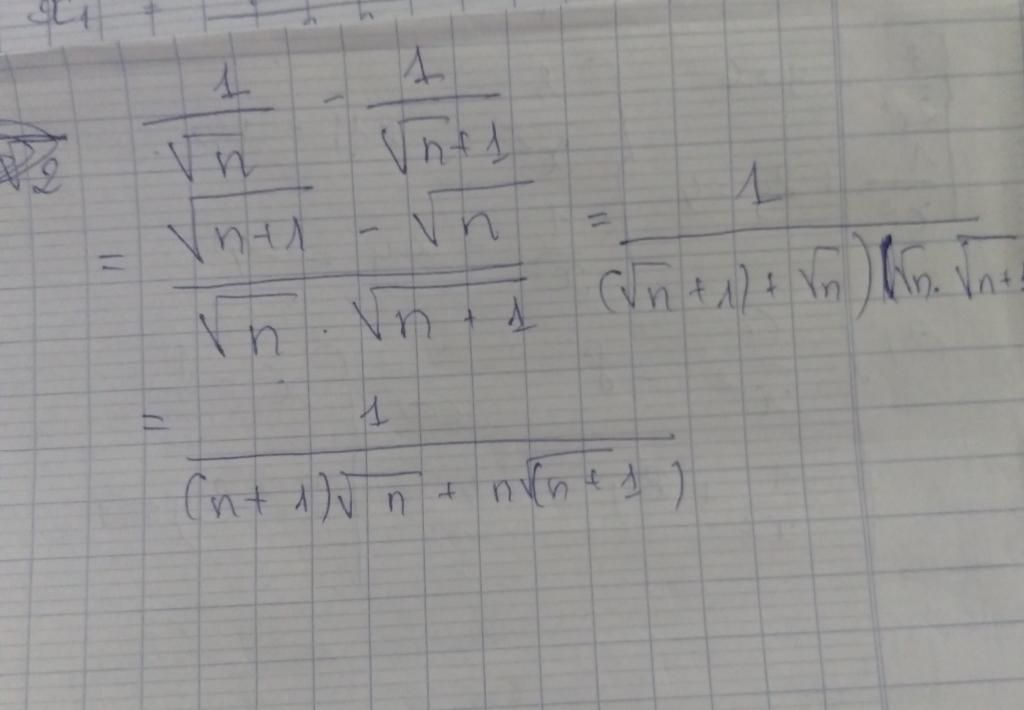 x₁
1/√n - 1/(√n+1)
√2
= (√(n+1) - √n)/(√n · √(n+1)) = 1/((√n+1)+√n)(√n · √(n+
= 1/((n+1)√n + n√(n+1))